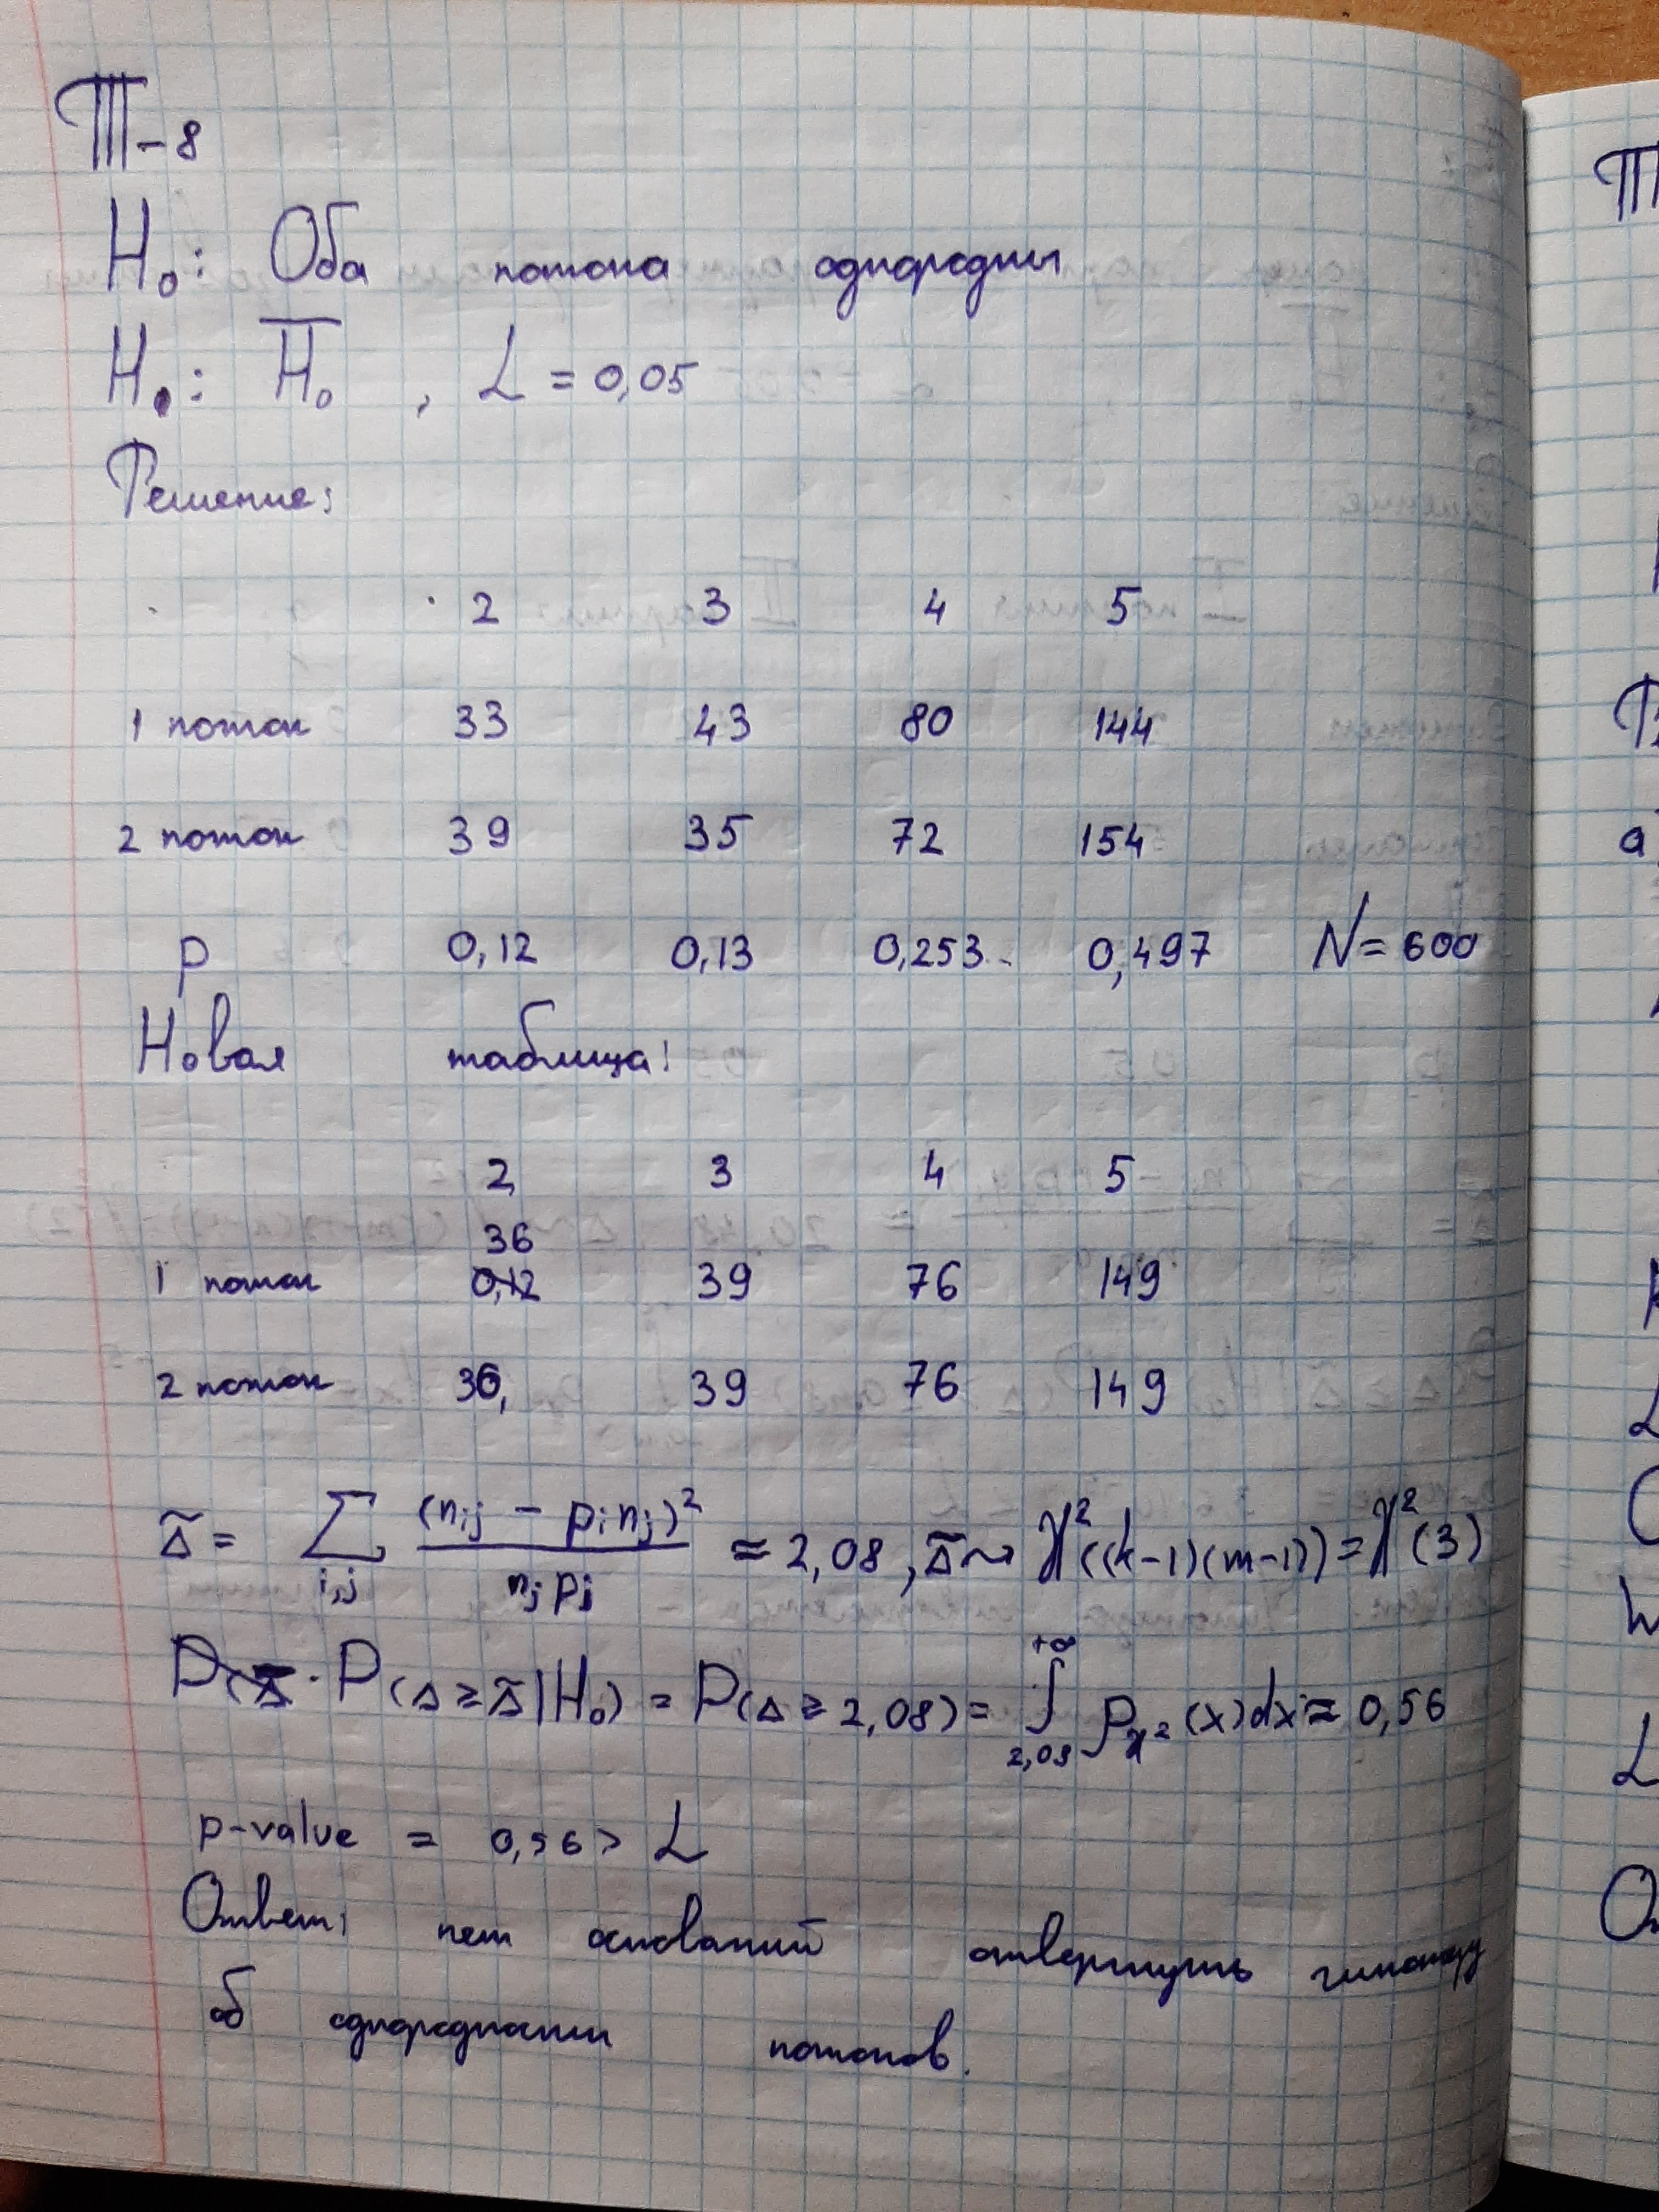 Т-8
H₀: Оба потока однородны
H₁: H̅₀ , L = 0,05
Решение:
2 3 4 5
1 поток 33 43 80 144
2 поток 39 35 72 154
P 0,12 0,13 0,253 0,497 N = 600
Новая таблица:
2 3 4 5
36
1 поток 0,12 39 76 149
2 поток 36, 39 76 149
Δ̃ = Σ i,j (nij - pi nj)² / nj pj ≈ 2,08, Δ̃ ~ χ²((k-1)(m-1)) = χ²(3)
P(Δ̃ · P(Δ ≥ Δ̃ | H₀) = P(Δ ≥ 2,08) = ∫ 2,08 +∞ pχ²(x)dx ≈ 0,56
p-value = 0,56 > L
Ответ: нет оснований отвергнуть гипотезу
об однородности потоков.